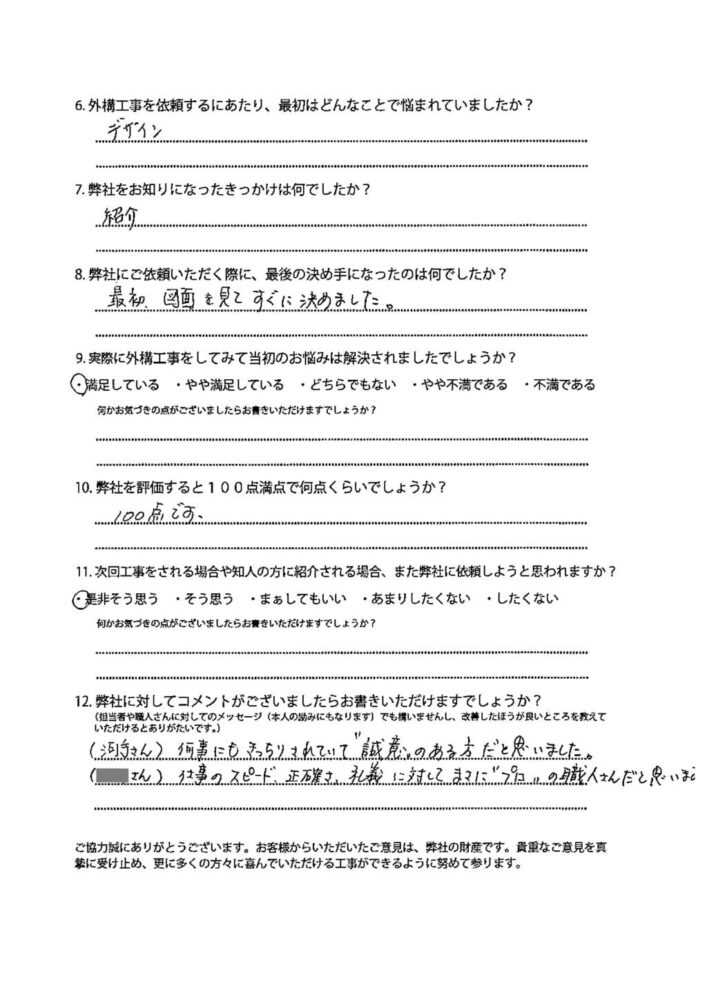 6. 外構工事を依頼するにあたり、最初はどんなことで悩まれていましたか？
デザイン
7. 弊社をお知りになったきっかけは何でしたか？
紹介
8. 弊社にご依頼いただく際に、最後の決め手になったのは何でしたか？
最初、図面を見てすぐに決めました。
9. 実際に外構工事をしてみて当初のお悩みは解決されましたでしょうか？
・満足している ・やや満足している ・どちらでもない ・やや不満である ・不満である
何かお気づきの点がございましたらお書きいただけますでしょうか？
10. 弊社を評価すると１００点満点で何点くらいでしょうか？
100点です、
11. 次回工事をされる場合や知人の方に紹介される場合、また弊社に依頼しようと思われますか？
・是非そう思う ・そう思う ・まぁしてもいい ・あまりしたくない ・したくない
何かお気づきの点がございましたらお書きいただけますでしょうか？
12. 弊社に対してコメントがございましたらお書きいただけますでしょうか？
（担当者や職人さんに対してのメッセージ（本人の励みにもなります）でも構いませんし、改善したほうが良いところを教えて
いただけるとありがたいです。）
(さん) 何事にもきっちりされていて〝誠意〟のある方だと思いました。
(さん) 仕事のスピード、正確さ、礼義に対してまさに〝プロ〟の職人さんだと思いま
ご協力誠にありがとうございます。お客様からいただいたご意見は、弊社の財産です。貴重なご意見を真
摯に受け止め、更に多くの方々に喜んでいただける工事ができるように努めて参ります。